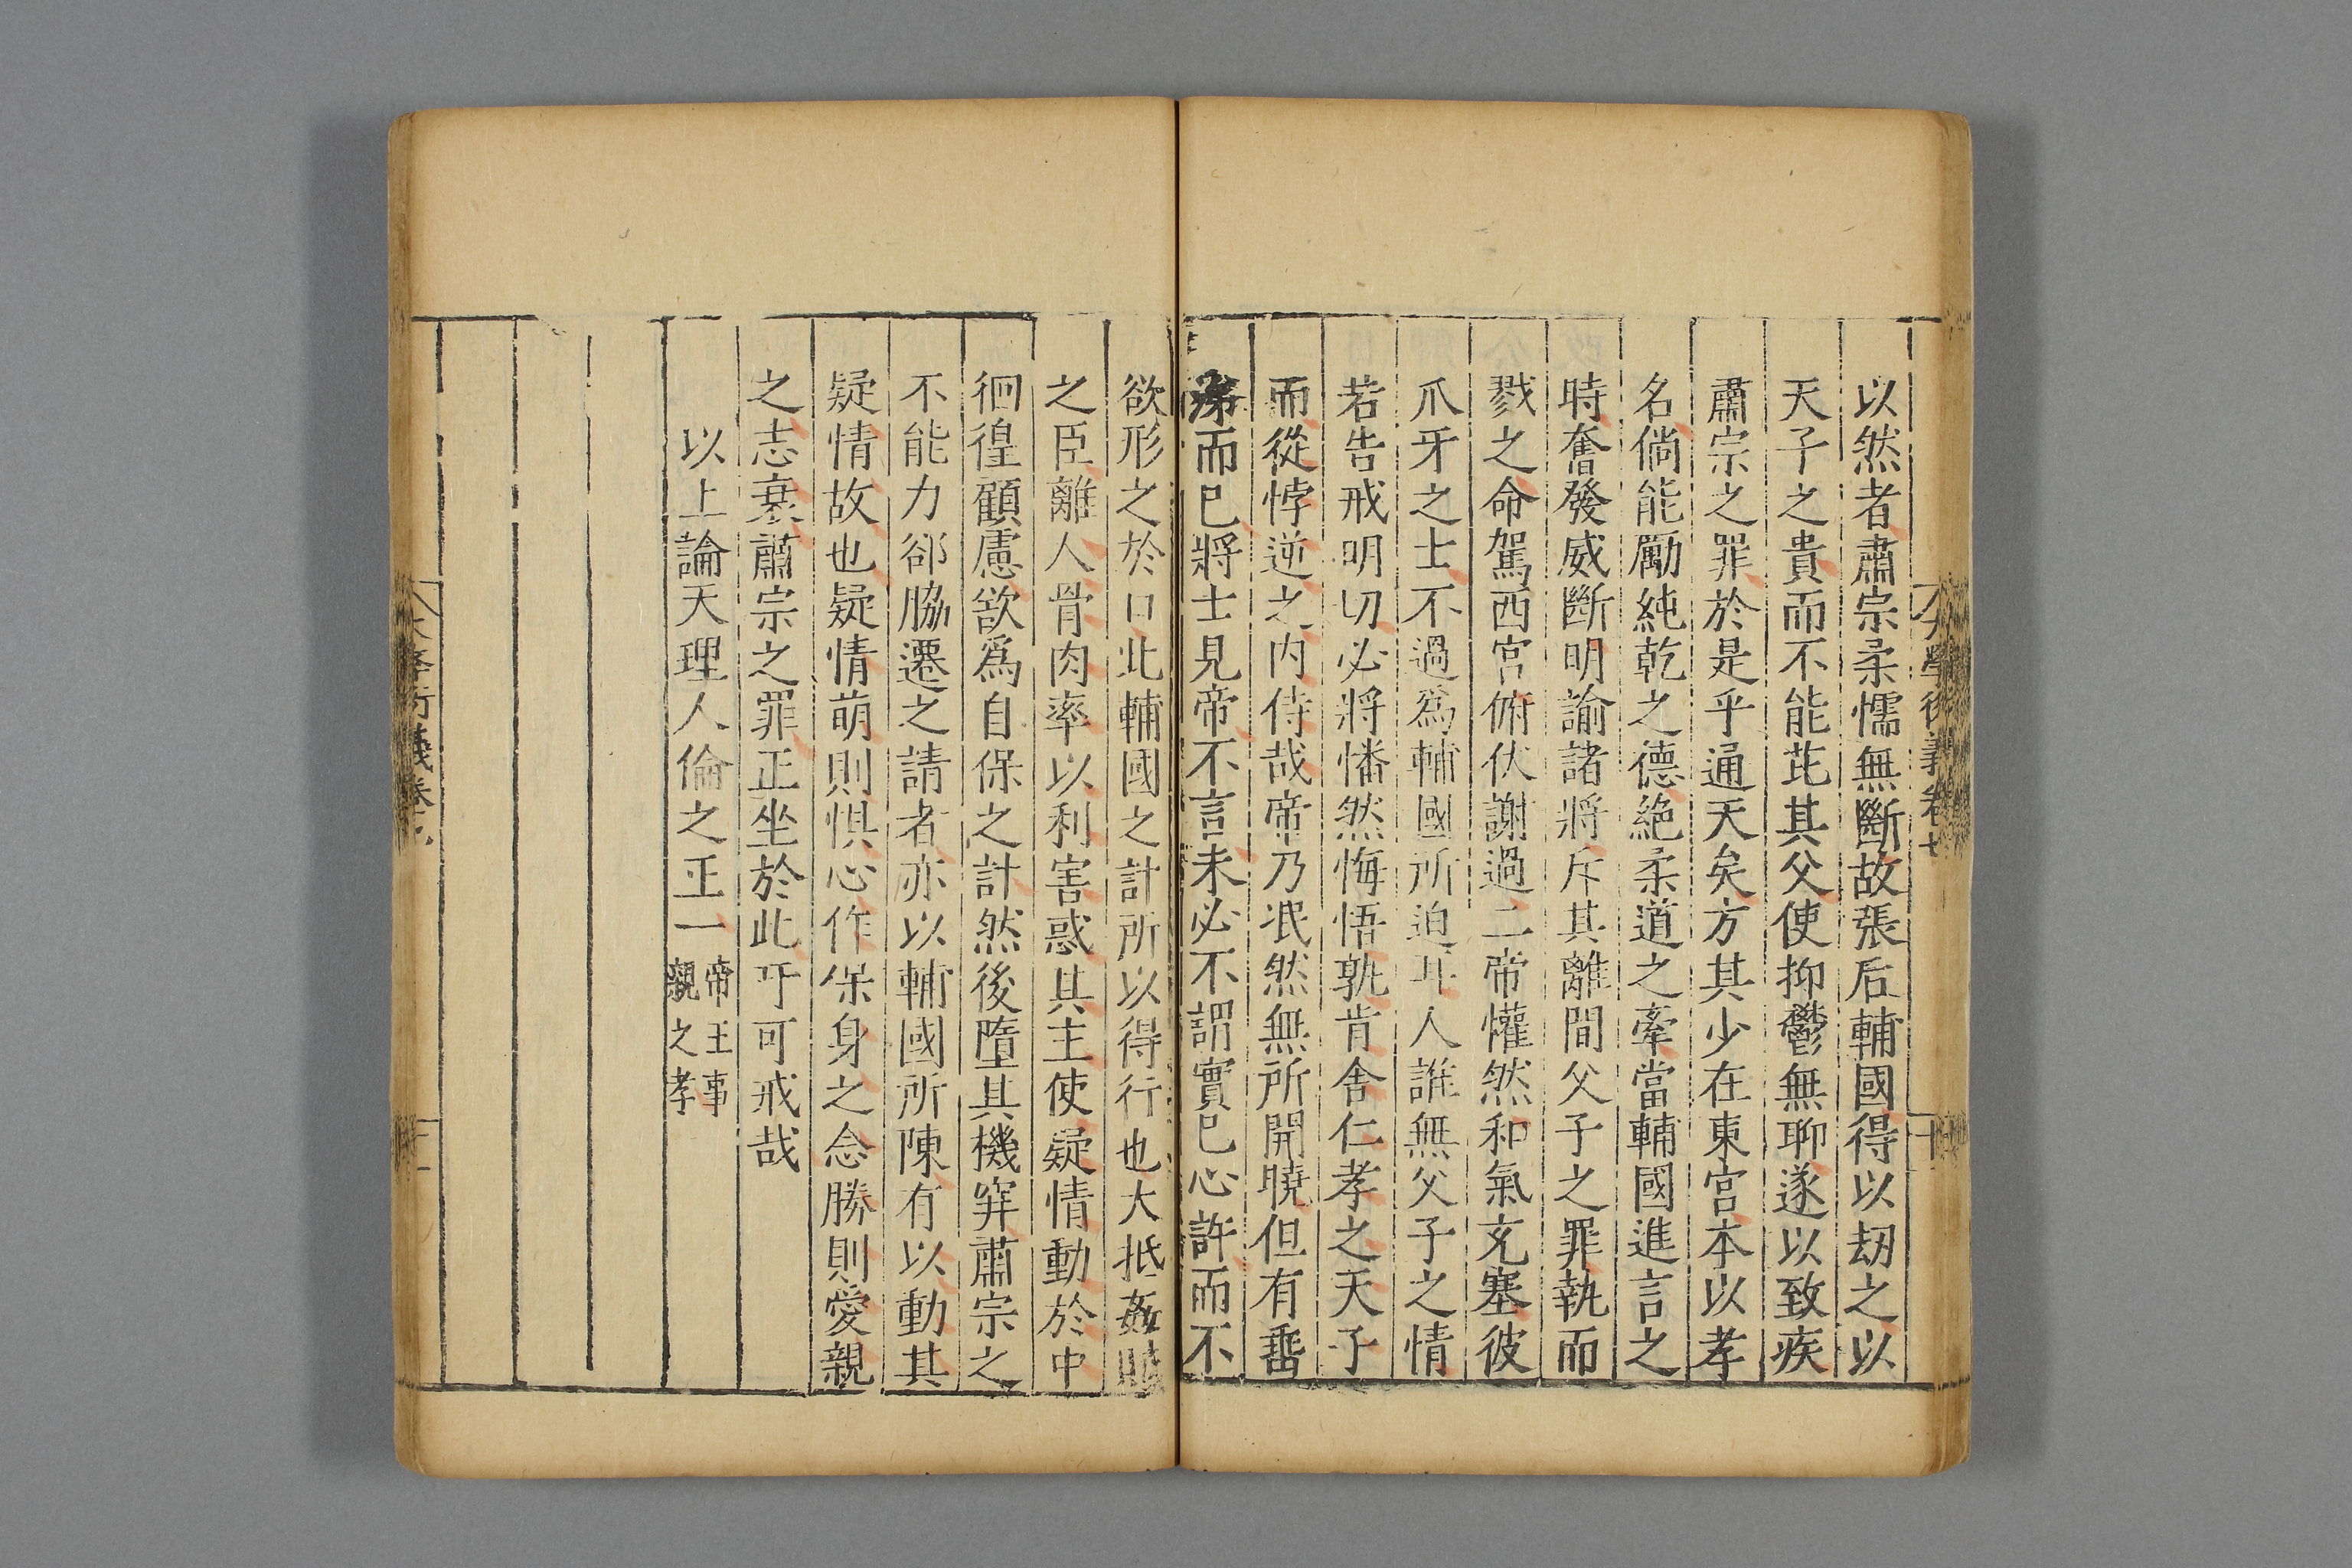 以然者肅宗柔懦無斷故張后輔國得以刼之以
天子之貴而不能芘其父使抑鬱無聊遂以致疾
肅宗之罪於是乎通天矣方其少在東宮本以孝
名倘能勵純乾之德絶柔道之牽當輔國進言之
時奮發威斷明諭諸將斥其離間父子之罪執而
戮之命駕西宮俯伏謝過二帝懽然和氣充塞彼
爪牙之士不過爲輔國所迫耳人誰無父子之情
若告戒明切必將憣然悔悟孰肯舍仁孝之天子
而從悖逆之内侍哉帝乃泯然無所開曉但有垂
涕而已將士見帝不言未必不謂實已心許而不
欲形之於口此輔國之計所以得行也大抵姦賊
之臣離人骨肉率以利害惑其主使疑情動於中
徊徨顧慮欲爲自保之計然後墮其機穽肅宗之
不能力郤脇遷之請者亦以輔國所陳有以動其
疑情故也疑情萌則惧心作保身之念勝則愛親
之志衰肅宗之罪正坐於此吁可戒哉
以上論天理人倫之正一
帝王事
親之孝